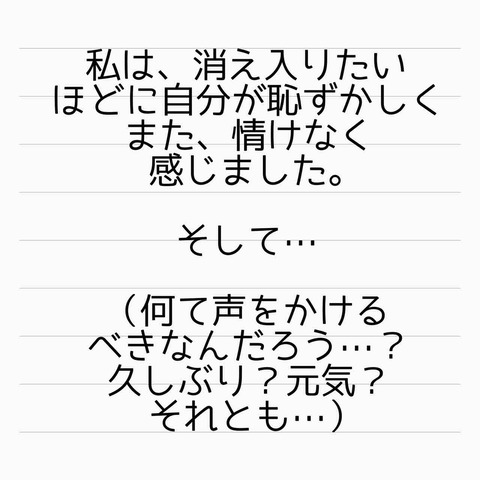 私は、消え入りたい
ほどに自分が恥ずかしく
また、情けなく
感じました。
そして…
（何て声をかける
べきなんだろう…？
久しぶり？元気？
それとも…）